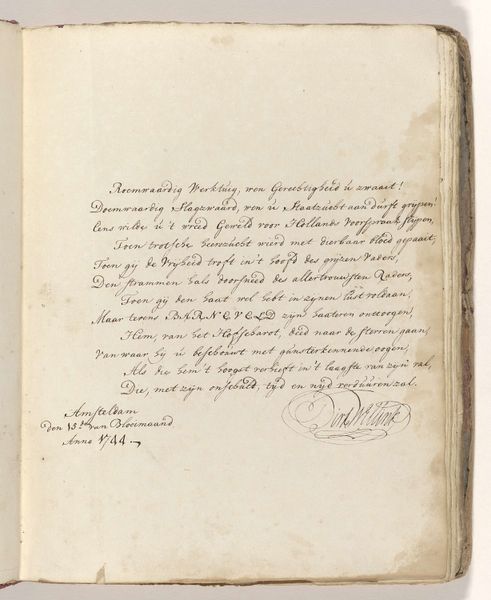 Roemwaardig Werktuig, wen Gerechtigheid u zwaait!
Doemwaardig Slagzwaard, wen u Staatzucht aan durft grijpen!
Eens wilde u 't wreed Geweld voor Hollands Voorspraak slijpen,
Toen trotsche heerszucht wierd met dierbaar bloed gepaait,
Toen gij de Vrijheid troft in 't hoofd des grijzen Vaders,
Den strammen hals doorsneed des allertrouwsten Raders,
Toen gij den haat wel hebt in zijnen lust voldaan,
Maar tevens BARNEVELD zijn haateren onttoogen,
Hem, van het Hofschavot, deed naar de sterren gaan,
Van waar hij u beschouwt met gunsterkennende oogen,
Als die hem 't hoogst verhieft in 't laagste van zijn val,
Die, met zijn onschuld, tyd en nyd verduuren zal.
Amsteldam
den 13.de van Bloeimaand
Anno 1744.
Dirk Willink